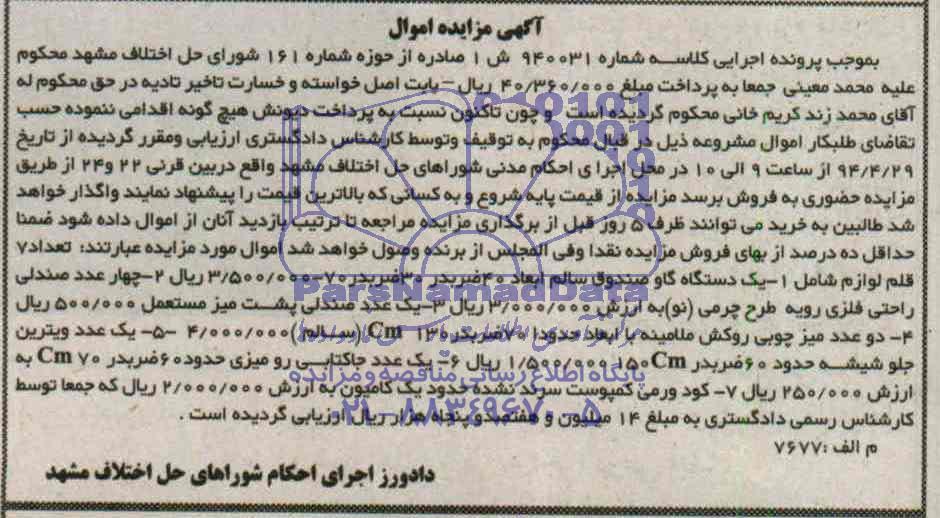 آگهی مزایده اموال
بموجب پرونده اجرایی کلاسه شماره ۹۴۰۰۳۱ ش ۱ صادره از حوزه شماره ۱۶۱ شورای حل اختلاف مشهد محکوم
علیه محمد معینی جمعا به پرداخت مبلغ ۴۰/۳۶۰/۰۰۰ ریال – بابت اصل خواسته و خسارت تاخیر تادیه در حق محکوم له
آقای محمد زند کریم خانی محکوم گردیده است و چون تاکنون نسبت به پرداخت دیونش هیچ گونه اقدامی ننموده حسب
تقاضای طلبکار اموال مشروعه ذیل در قبال محکوم به توقیف وتوسط کارشناس دادگستری ارزیابی ومقرر گردیده از تاریخ
۹۴/۴/۲۹ از ساعت ۹ الی ۱۰ در محل اجرا ی احکام مدنی شوراهای حل اختلاف مشهد واقع دربین قرنی ۲۲ و۲۴ از طریق
مزایده حضوری به فروش برسد مزایده از قیمت پایه شروع و به کسانی که بالاترین قیمت را پیشنهاد نمایند واگذار خواهد
شد طالبین به خرید می توانند ظرف ۵ روز قبل از برگذاری مزایده مراجعه تا ترتیب بازدید آنان از اموال داده شود ضمنا
حداقل ده درصد از بهای فروش مزایده نقدا وفی المجلس از برنده وصول خواهد شد اموال مورد مزایده عبارتند: تعداد۷
قلم لوازم شامل ۱-یک دستگاه گاو صندوق سالم ابعاد ۴۰ضربدر ۳۰ضربدر۷۰-۳/۵۰۰/۰۰۰ ریال ۲-چهار عدد صندلی
راحتی فلزی رویه طرح چرمی (نو)به ارزش ۳/۰۰۰/۰۰۰ ریال ۳-یک عدد صندلی پشت میز مستعمل ۵۰۰/۰۰۰ ریال
۴- دو عدد میز چوبی روکش ملامینه با ابعاد حدودا ۷۰ضربدر۱۳۰ Cm (سالم)۴/۰۰۰/۰۰۰ -۵- یک عدد ویترین
جلو شیشه حدود ۶۰ضربدر ۱۵۰Cm ۱/۵۰۰/۰۰۰ ریال ۶- یک عدد جاکتابی رو میزی حدود۶۰ضربدر ۷۰ Cm به
ارزش ۲۵۰/۰۰۰ ریال ۷- کود ورمی کمپوست سرند نشده حدود یک کامیون به ارزش ۲/۰۰۰/۰۰۰ ریال که جمعا توسط
کارشناس رسمی دادگستری به مبلغ ۱۴ میلیون و هفتصدو پنجاه هزار ریال ارزیابی گردیده است .
م الف :۷۶۷۷
دادورز اجرای احکام شوراهای حل اختلاف مشهد
ParsNamadData
پایگاه اطلاع رسانی مناقصه ومزایده
۰۲۱-۸۸۳۴۹۶۷۰-۵